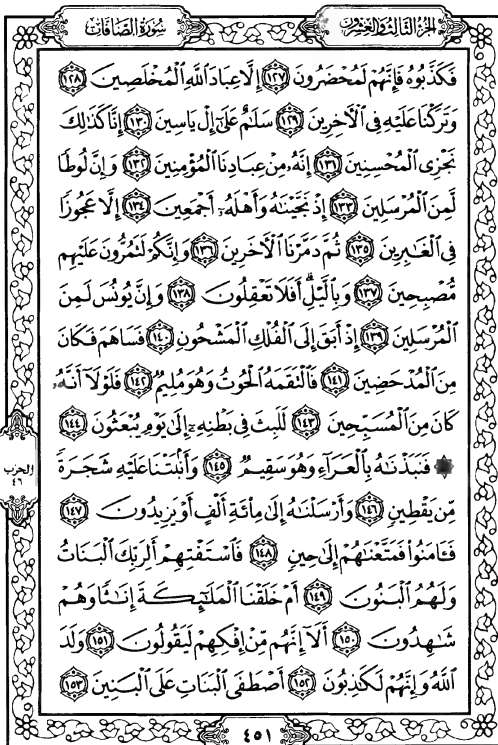 الجزء الثالث والعشرون
سورة الصافات
فَكَذَّبُوهُ فَإِنَّهُمْ لَمُحْضَرُونَ ١٢٧ إِلَّا عِبَادَ اللَّهِ الْمُخْلَصِينَ ١٢٨
وَتَرَكْنَا عَلَيْهِ فِي الْآخِرِينَ ١٢٩ سَلَامٌ عَلَىٰ إِلْ يَاسِينَ ١٣٠ إِنَّا كَذَٰلِكَ
نَجْزِي الْمُحْسِنِينَ ١٣١ إِنَّهُ مِنْ عِبَادِنَا الْمُؤْمِنِينَ ١٣٢ وَإِنَّ لُوطًا
لَّمِنَ الْمُرْسَلِينَ ١٣٣ إِذْ نَجَّيْنَاهُ وَأَهْلَهُ أَجْمَعِينَ ١٣٤ إِلَّا عَجُوزًا
فِي الْغَابِرِينَ ١٣٥ ثُمَّ دَمَّرْنَا الْآخَرِينَ ١٣٦ وَإِنَّكُمْ لَتَمُرُّونَ عَلَيْهِم
مُّصْبِحِينَ ١٣٧ وَبِاللَّيْلِ ۗ أَفَلَا تَعْقِلُونَ ١٣٨ وَإِنَّ يُونُسَ لَمِنَ
الْمُرْسَلِينَ ١٣٩ إِذْ أَبَقَ إِلَى الْفُلْكِ الْمَشْحُونِ ١٤٠ فَسَاهَمَ فَكَانَ
مِنَ الْمُدْحَضِينَ ١٤١ فَالْتَقَمَهُ الْحُوتُ وَهُوَ مُلِيمٌ ١٤٢ فَلَوْلَا أَنَّهُ
كَانَ مِنَ الْمُسَبِّحِينَ ١٤٣ لَلَبِثَ فِي بَطْنِهِ إِلَىٰ يَوْمِ يُبْعَثُونَ ١٤٤
۞ فَنَبَذْنَاهُ بِالْعَرَاءِ وَهُوَ سَقِيمٌ ١٤٥ وَأَنبَتْنَا عَلَيْهِ شَجَرَةً
الحزب
٤٦
مِّن يَقْطِينٍ ١٤٦ وَأَرْسَلْنَاهُ إِلَىٰ مِائَةِ أَلْفٍ أَوْ يَزِيدُونَ ١٤٧
فَآمَنُوا فَمَتَّعْنَاهُمْ إِلَىٰ حِينٍ ١٤٨ فَاسْتَفْتِهِمْ أَلِرَبِّكَ الْبَنَاتُ
وَلَهُمُ الْبَنُونَ ١٤٩ أَمْ خَلَقْنَا الْمَلَائِكَةَ إِنَاثًا وَهُمْ
شَاهِدُونَ ١٥٠ أَلَا إِنَّهُم مِّنْ إِفْكِهِمْ لَيَقُولُونَ ١٥١ وَلَدَ
اللَّهُ وَإِنَّهُمْ لَكَاذِبُونَ ١٥٢ أَصْطَفَى الْبَنَاتِ عَلَى الْبَنِينَ ١٥٣
٤٥١